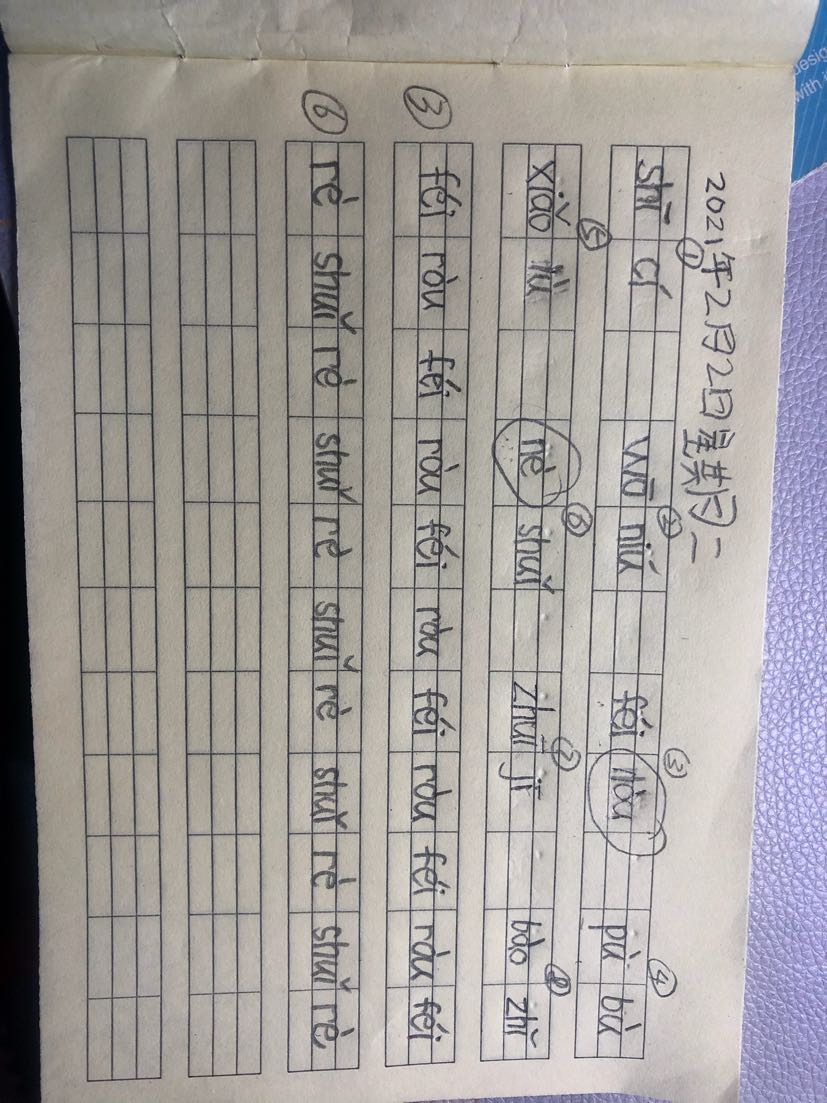 2021年2月2日星期二
① ② ③ ④
shī cí wō niú féi ròu pù bù
⑤ ⑥ ⑦ ⑧
xiǎo tù rè shuǐ zhū jī bào zhǐ
③ féi ròu féi ròu féi ròu féi ròu féi ròu féi
⑥ rè shuǐ rè shuǐ rè shuǐ rè shuǐ rè shuǐ rè